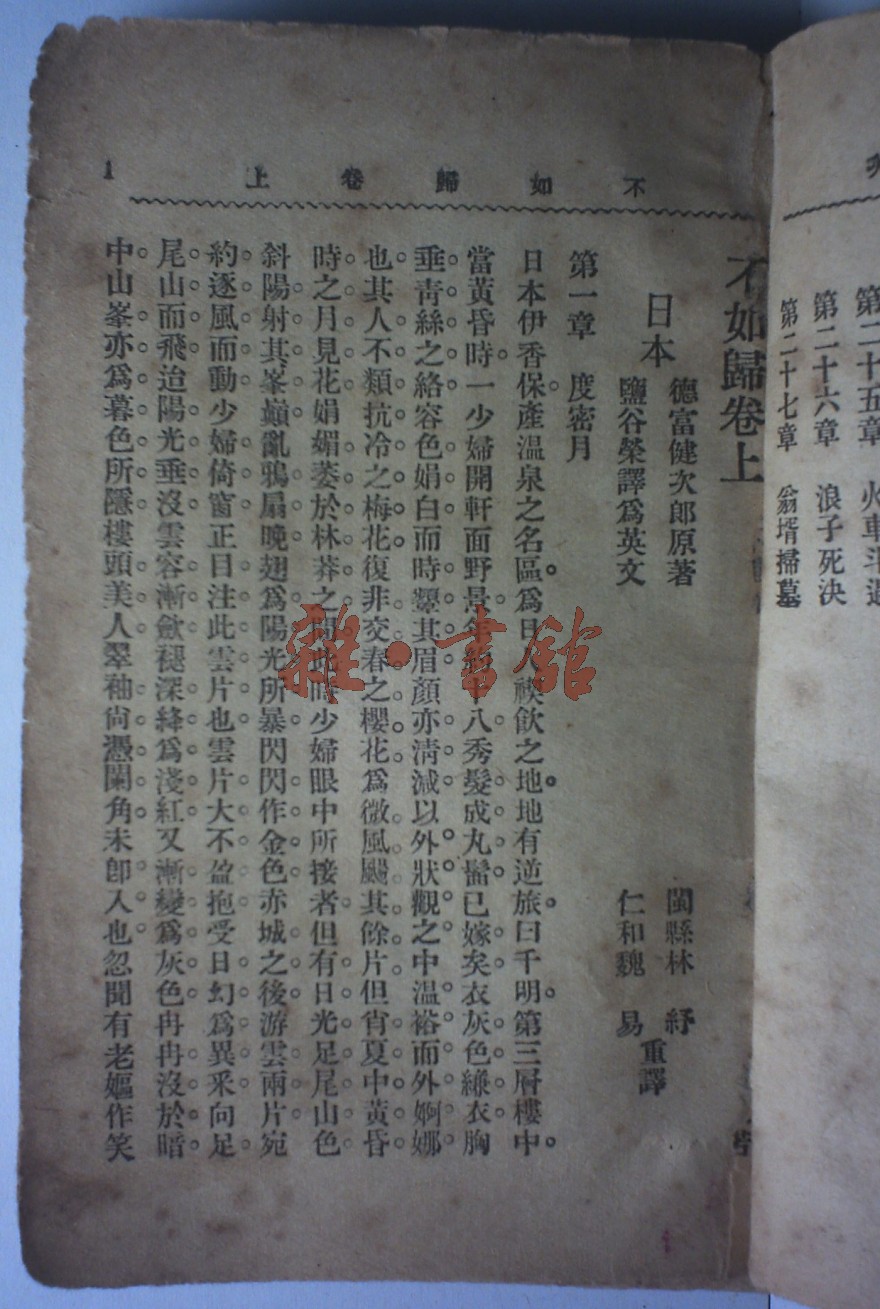 第二十五章 火車
第二十六章 浪子死決
第二十七章 翁壻掃墓
不如歸卷上
1
不如歸卷上
日本
德富健次郎原著
鹽谷榮譯爲英文
閩縣林 紓
仁和魏 易
重譯
第一章 度密月
日本伊香保產溫泉之名區爲日人禊飲之地地有逆旅曰千明第三層樓中
當黃昏時一少婦開軒面野景年約十八秀髮成丸髷已嫁矣衣灰色縑衣胸
垂靑絲之絡容色娟白而時顰其眉顏亦淸減以外狀觀之中溫裕而外婀娜
也其人不類抗冷之梅花復非交春之櫻花爲微風颺其餘片但肖夏中黃昏
時之月見花娟媚萎於林莽之間此時少婦眼中所接者但有日光足尾山色
斜陽射其峯巔亂鴉扇晚翅爲陽光所暴閃閃作金色赤城之後游雲兩片宛
約逐風而動少婦倚窗正目注此雲片也雲片大不盈抱受日幻爲異釆向足
尾山而飛迨陽光垂沒雲容漸斂褪深絳爲淺紅又漸變爲灰色冉冉沒於暗
中山峯亦爲暮色所隱樓頭美人翠袖尙憑闌角未卽入也忽聞有老嫗作笑
雜·書館